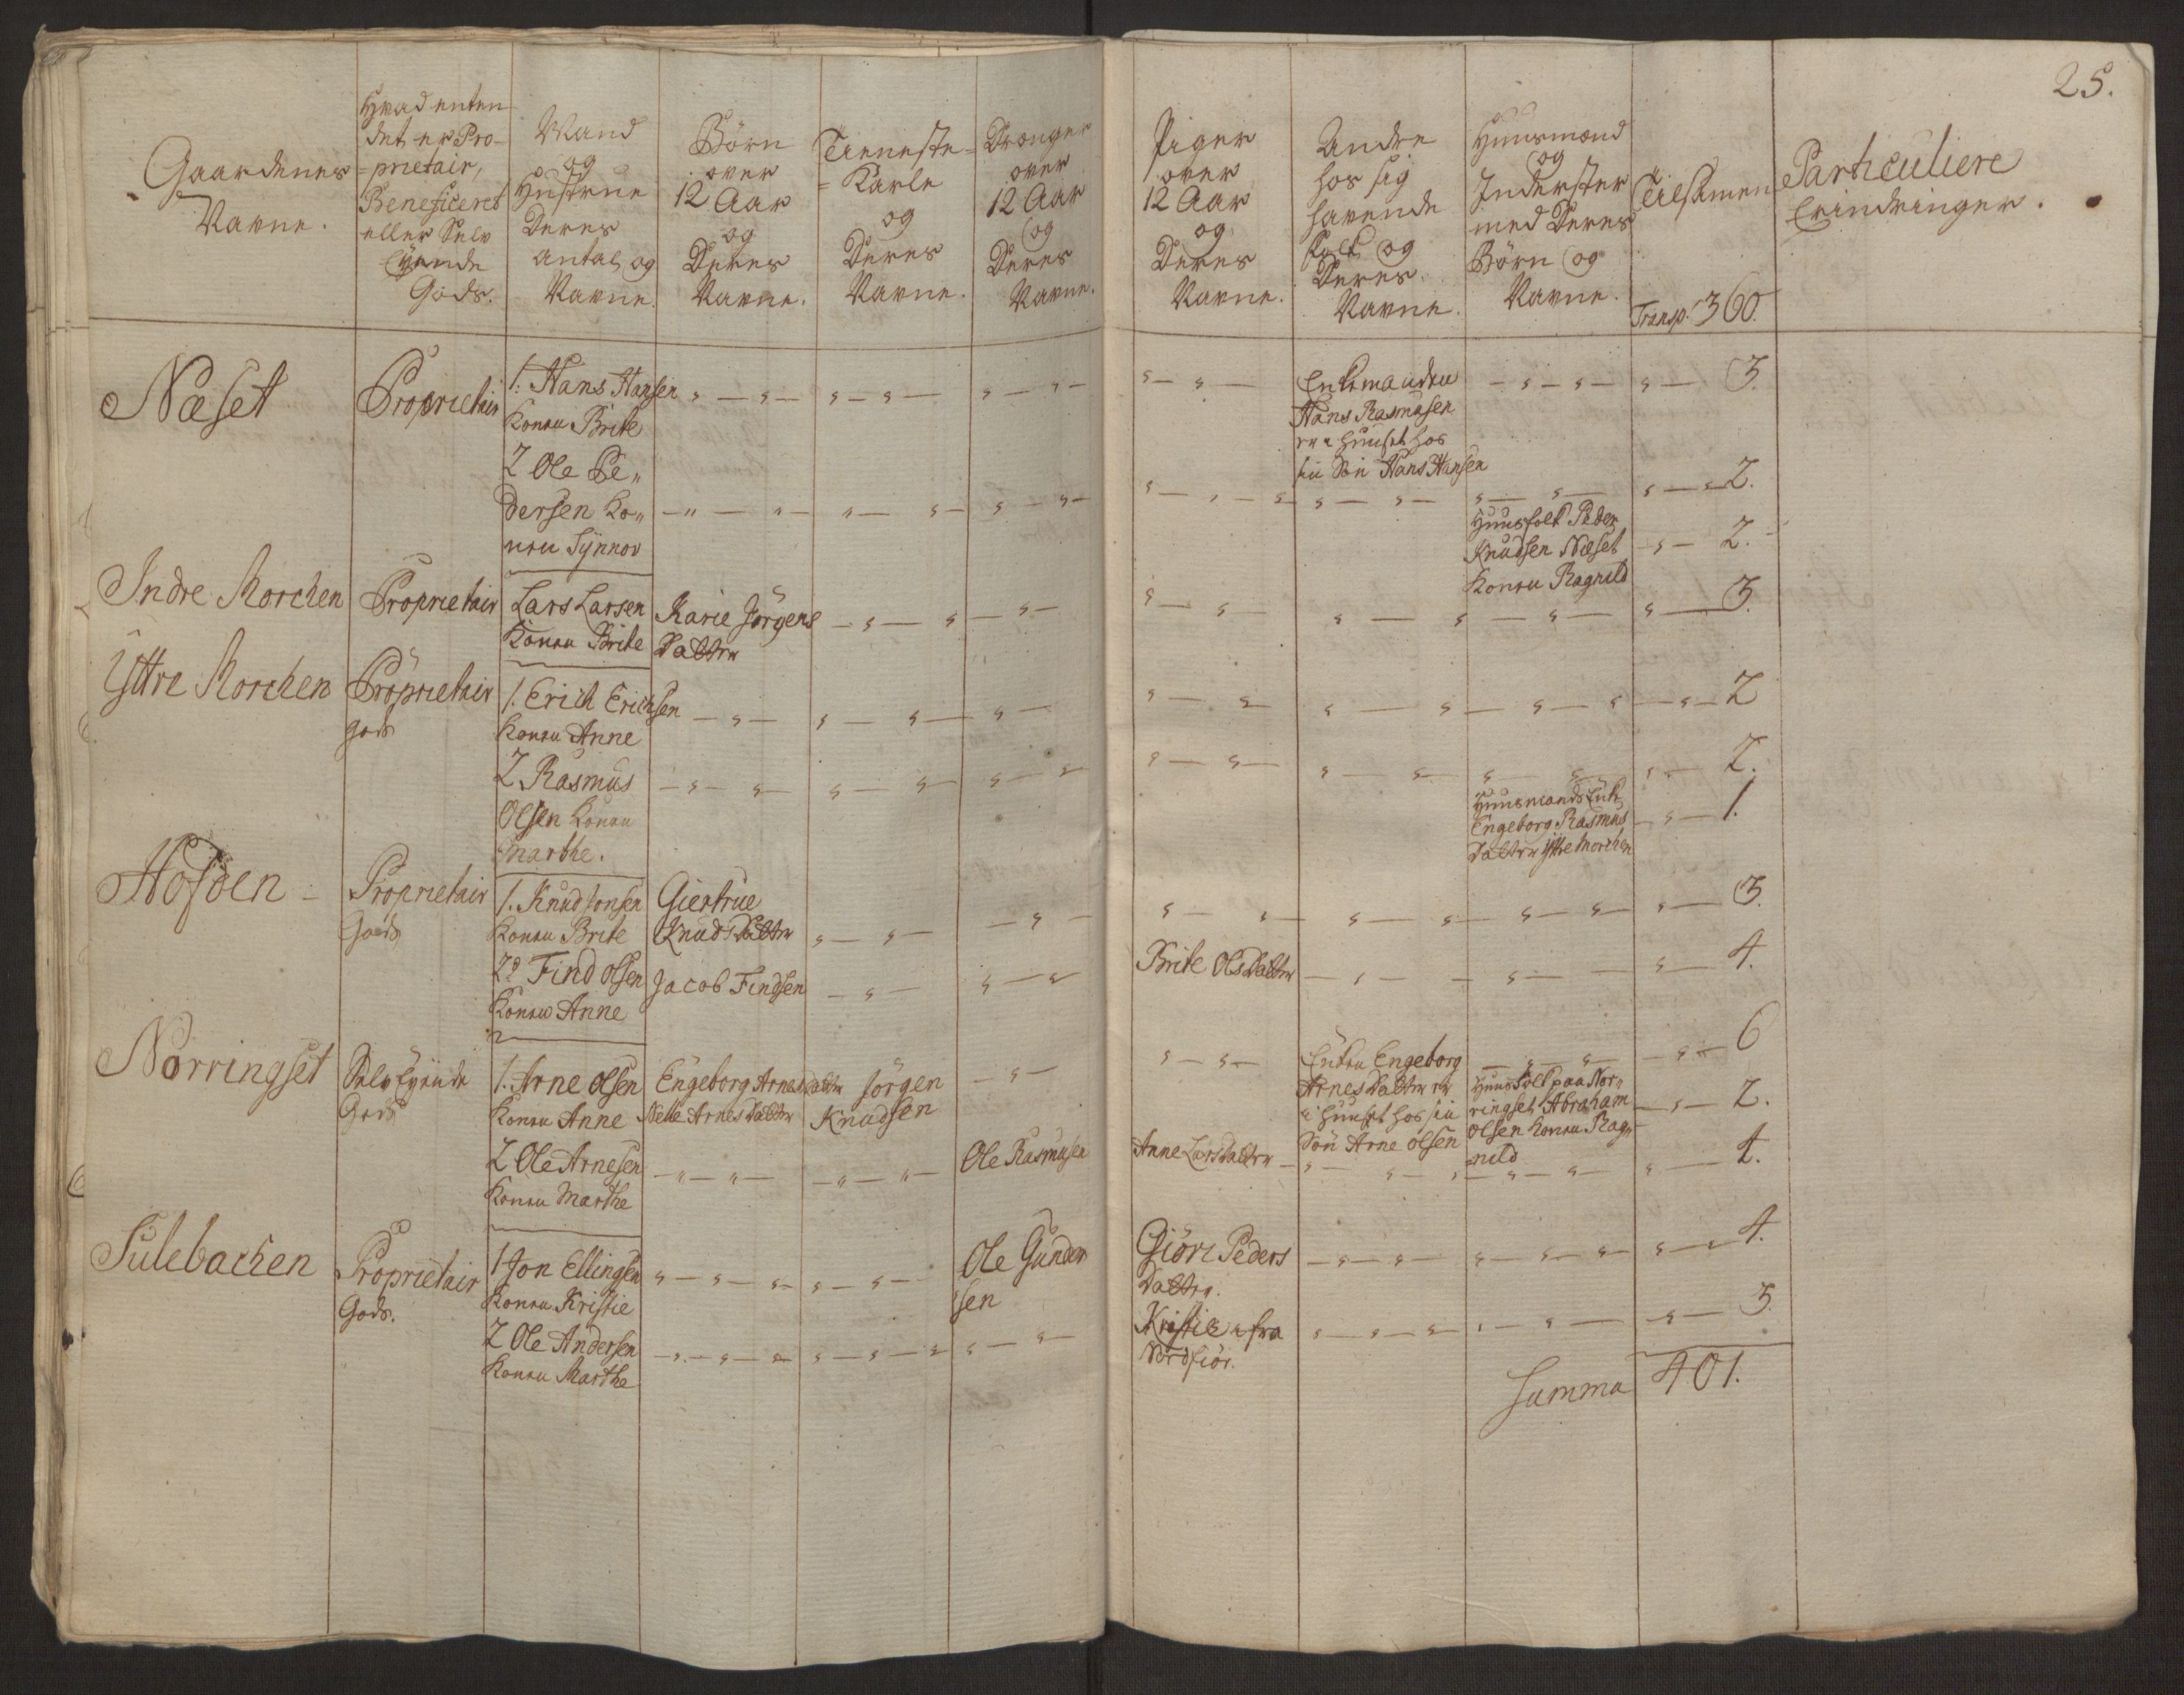 25.
Gaardenes
Navne.
Hvad enten
det er Pro-
=prietair,
Beneficeret
eller Selv
Eyende
Gods.
Mand
og
Hustrue
Deres
Antal og
Navne.
Børn
over
12 Aar
og
Deres
Navne.
Tieneste-
=Karle
og
Deres
Navne.
Drænger
over
12 Aar
og
Deres
Navne.
Piger
over
12 Aar
og
Deres
Navne.
Andre
hos sig
havende
Folk og
Deres
Navne.
Huusmænd
og
Inderster
med Deres
Börn og
Navne.
Tilsamen
Transp. 360.
Particuliere
Erindringer.
Næset
Proprietair
1. Hans Hansen
Konen Brite
Enkemanden
Hans Rasmusen
er i Huuset hos
sin Sön Hans Hansen
3.
2 Ole Pe„
dersen Ko„
nen Synnov
2.
Huusfolk Peder
Knudsen Næset
Konen Ragnild
2.
Indre Morchen
Proprietair
Lars Larsen
Konen Brite
Karie Jörgens
Datter
3.
Yttre Morchen
Proprietair
gods
1. Erich Erichsen
Konen Anne
2
2 Rasmus
Olsen Konen
Marthe.
2.
Huusmands Enke
Engeborg Rasmus
Datter Yttre Morchen
1.
Hofden
Proprietair
Gods
1. Knud Jonsen
Konen Brite
Giertrue
Knuds Datter
3.
2. Find Olsen
Konen Anne
Jacob Findsen
Brite Ols Datter
4.
Nørringset
Selv Eyende
Gods
1. Arne Olsen
Konen Anne
Engeborg Arnes Datter
Nelle Arnes Datter
Jörgen
Knudsen
Enken Engeborg
Arnes Datter er
i Huuset hos sin
Sön Arne Olsen
6
Huusfolk paa Nör„
ringset Abraham
Olsen Konen Rag„
nild
2.
2 Ole Arnesen
Konen Marthe
Ole Rasmusen
Anne Lars Datter
4.
Sulebachen
Proprietair
Gods.
1 Jon Ellingsen
Konen Kristie
Ole Gunder
sen
Giöre Peders
Datter.
4.
2 Ole Andersen
Konen Marthe
Kristie fra
Nordfiör.
3.
Summa 401.